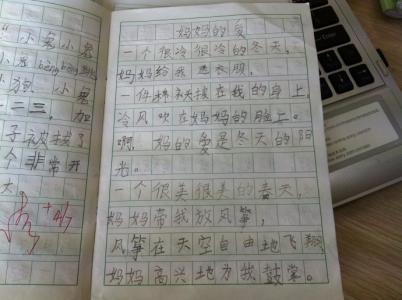 "小老小老
小老bàng bàng
小狗 小老
二三，加
子被找了
个非常开
大
+4
妈妈的爱
一个很冷很冷的冬天，
妈妈给我送衣服，
一件棉袄披在我的身上，
冷风吹在妈妈的脸上。
啊，妈的爱是冬天的阳
光。
一个很美很美的春天，
妈妈带我放风筝，
风筝在天空自由地飞翔
妈妈高兴地为我鼓掌。